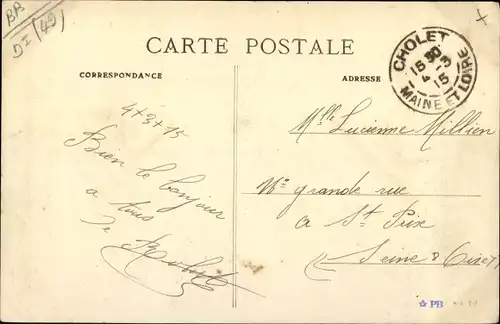 BB
DI (49)
CARTE POSTALE
CORRESPONDANCE
ADRESSE
CHOLET
15 30
4 - 3
15
MAINE ET LOIRE
4 + 3 + 15
Bien le bonjour
a tous
De
Mlle Lucienne Millien
grande rue
a St Prix
Seine & Oise
PB